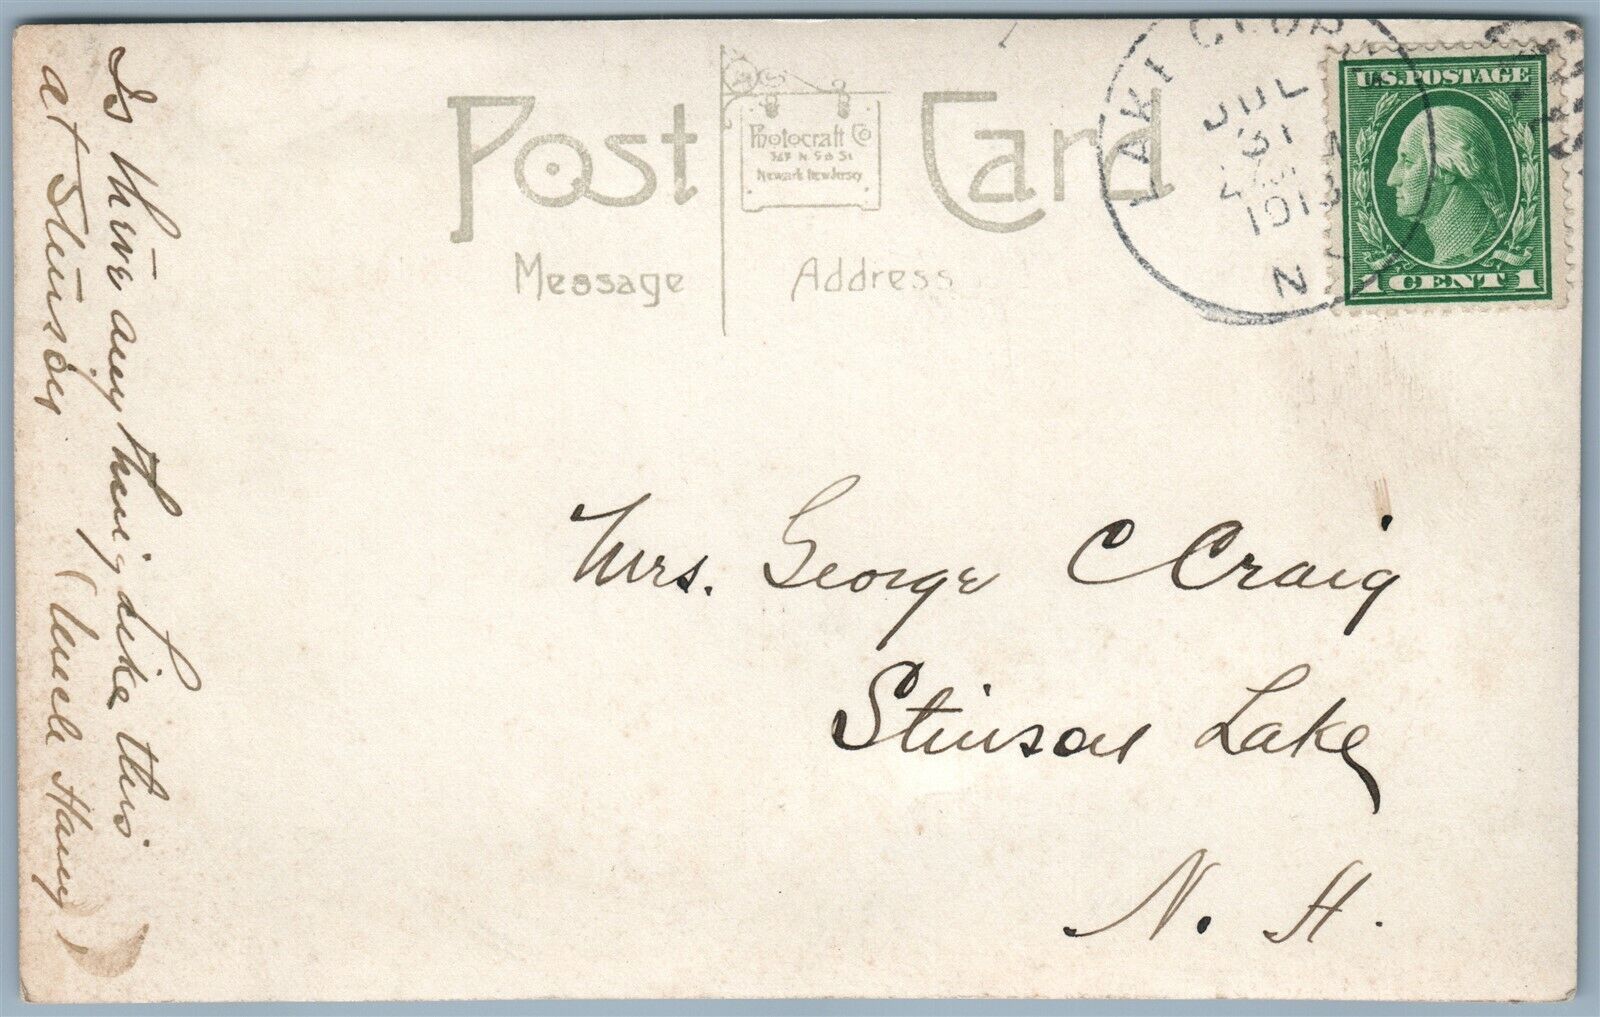 Post Card
Photocraft Co
367 N. 5th St
Newark New Jersey
Message
Address
LAKE CLEAR
JUL
31
1913
N Y
U.S. POSTAGE
1 CENT 1
Is there any thing like this
at Stinson
(Uncle Harry)
Mrs. George C Craig
Stinson Lake
N. H.